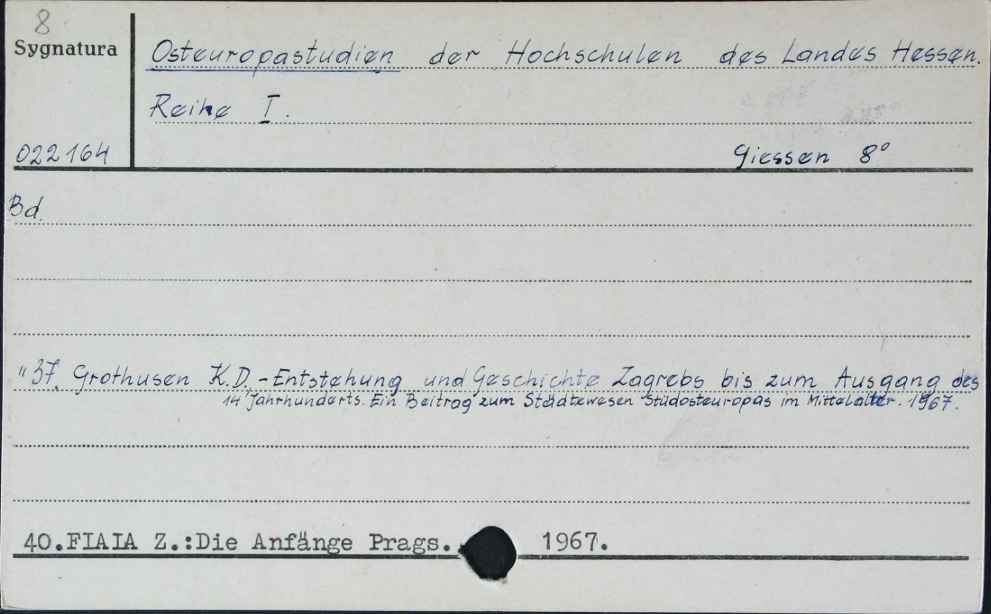 8
Sygnatura
Osteuropastudien der Hochschulen des Landes Hessen.
Reihe I.
022164
Giessen 8°
Bd.
" 37. Grothusen K.D. - Entstehung und Geschichte Zagrebs bis zum Ausgang des
14 Jahrhunderts. Ein Beitrag zum Städtewesen Stüdosteuropas im Mittelalter. 1967.
40.FIAIA Z.:Die Anfänge Prags. 1967.